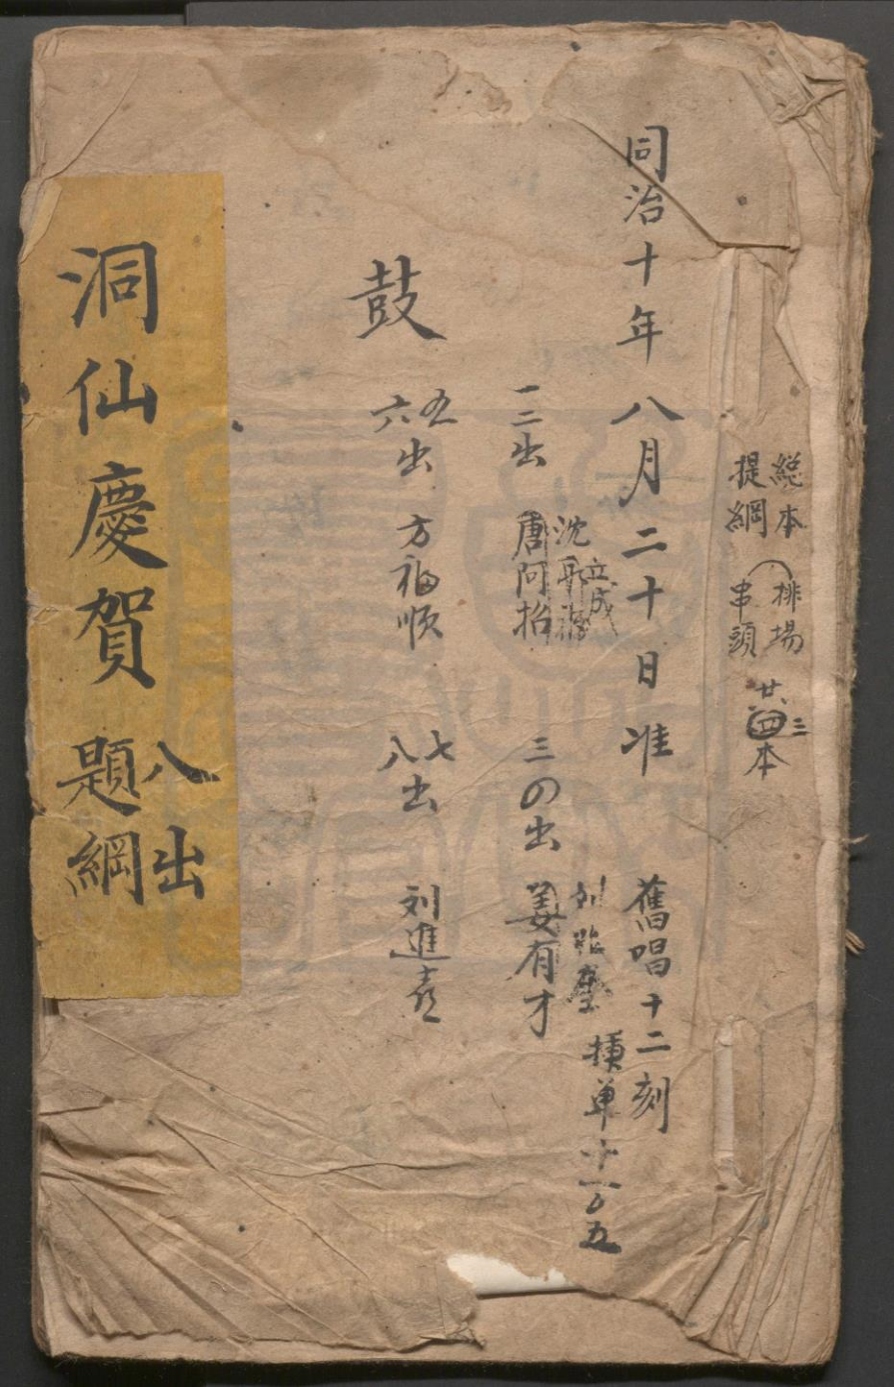 総本
提綱
排場
串頭
廿四三本
同治十年八月二十日准
舊唱十二刻
単十一刀五
一二出
沈
立成
唐阿招
三四出
姜有才
鼓
五六出 方福順
七八出 刘進喜
洞仙慶賀
八出
題綱